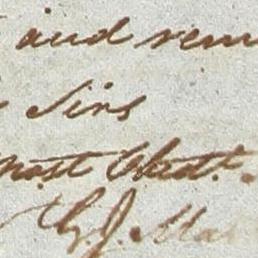 and rem
Sirs
most Obedt.
G. J. Ma